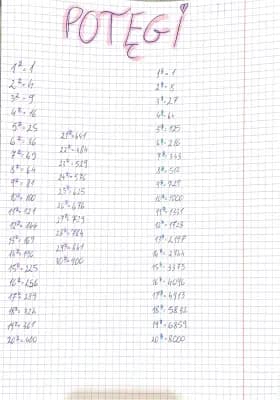 POTĘGI
1² = 1
2² = 4
3² = 9
4² = 16
5² = 25
6² = 36
7² = 49
8² = 64
9² = 81
10² = 100
11² = 121
12² = 144
13² = 169
14² = 196
15² = 225
16² = 256
17² = 289
18² = 324
19² = 361
20² = 400
21² = 441
22² = 484
23² = 529
24² = 576
25² = 625
26² = 676
27² = 729
28² = 784
29² = 841
30² = 900
1³ = 1
2³ = 8
3³ = 27
4³ = 64
5³ = 125
6³ = 216
7³ = 343
8³ = 512
9³ = 729
10³ = 1000
11³ = 1331
12³ = 1728
13³ = 2197
14³ = 2744
15³ = 3375
16³ = 4096
17³ = 4913
18³ = 5832
19³ = 6859
20³ = 8000